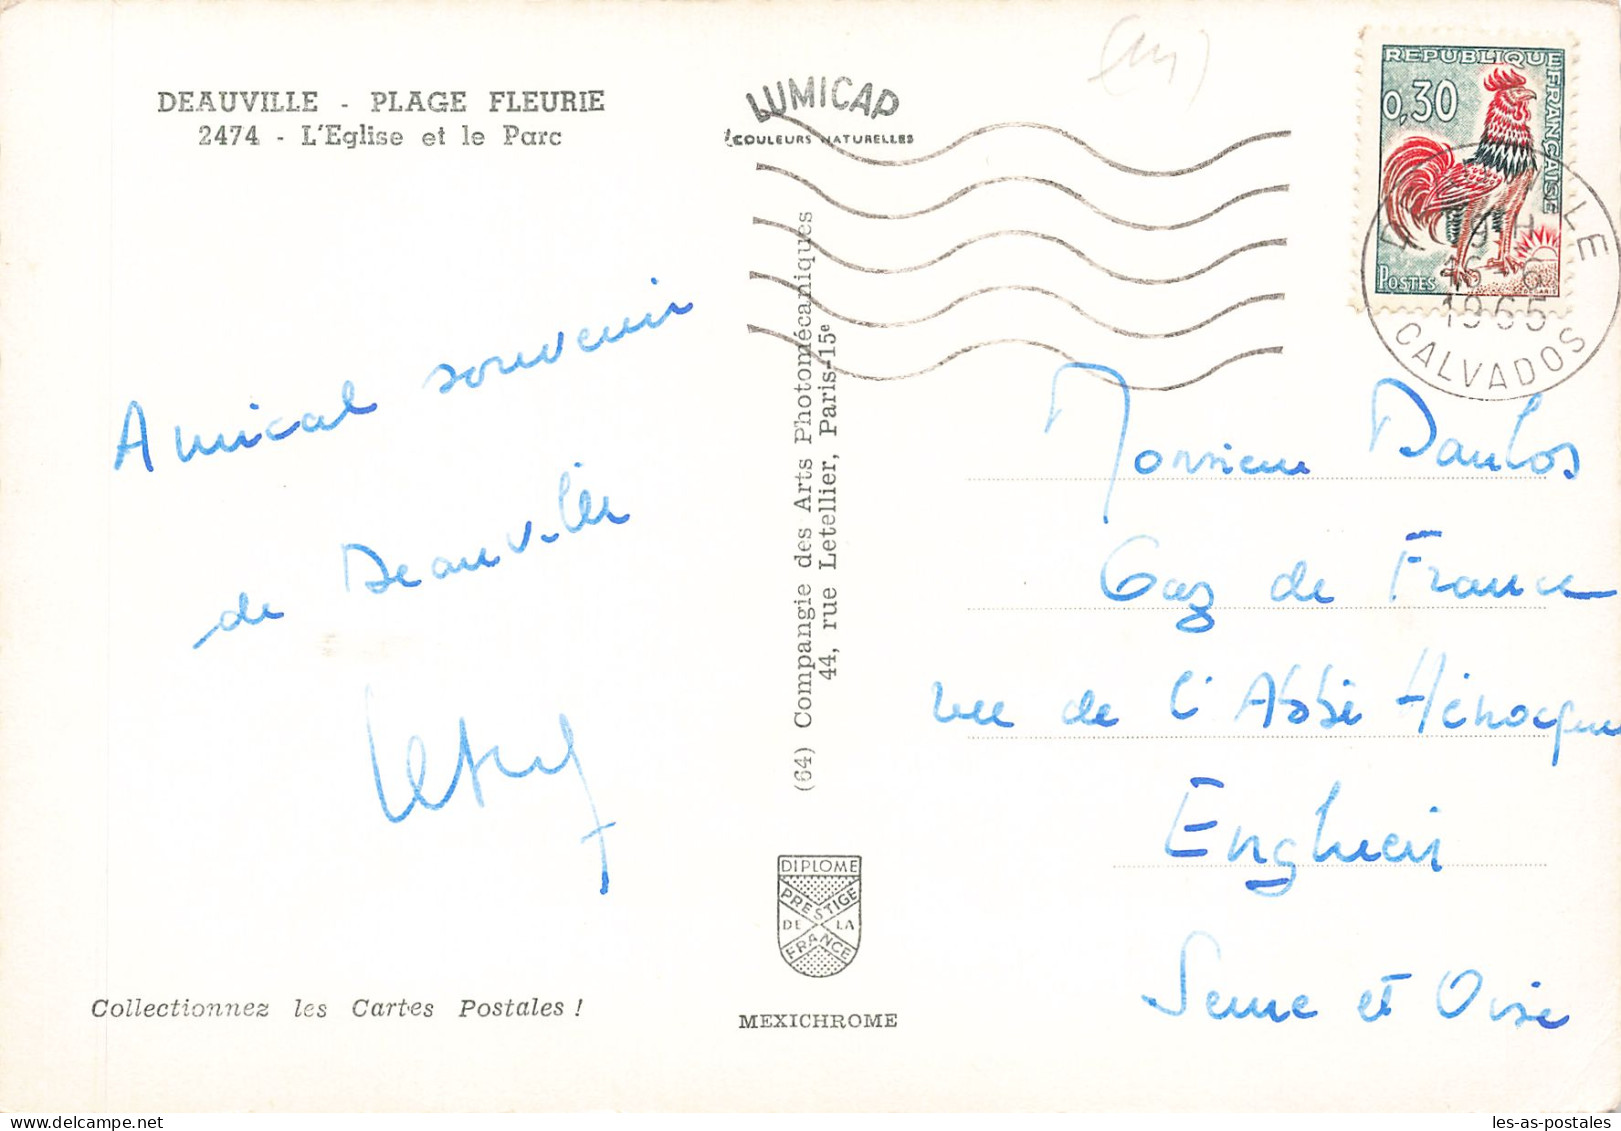 DEAUVILLE - PLAGE FLEURIE
2474 - L'Eglise et le Parc
LUMICAP
COULEURS NATURELLES
REPUBLIQUE FRANÇAISE
0,30
POSTES
19H
1965
CALVADOS
Amical souvenir
de Deauville
(64) Compangie des Arts Photomécaniques
44, rue Letellier, Paris-15e
Monsieur Daulos
Gaz de France
rue de l'Abbé Hénocque
Enghien
Seine et Oise
DIPLOME
PRESTIGE
DE LA
FRANCE
Collectionnez les Cartes Postales !
MEXICHROME
les-as-postales